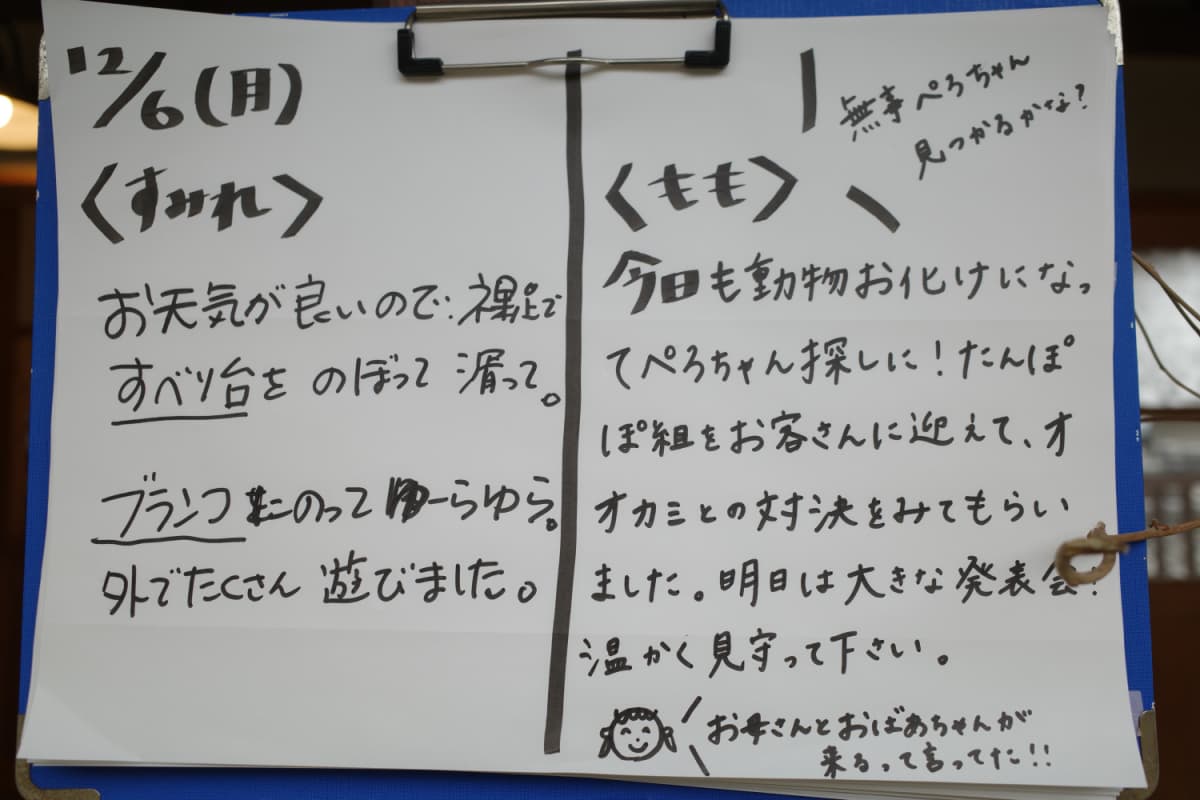 12/6(月)
〈すみれ〉
お天気が良いので、裸足で
すべり台を のぼって 滑って。
ブランコにのって ゆーらゆら。
外でたくさん 遊びました。
無事ぺろちゃん
見つかるかな?
〈もも〉
今日も動物お化けになっ
てぺろちゃん探しに!たんぽ
ぽ組をお客さんに迎えて、オ
オカミとの対決をみてもらい
ました。明日は大きな発表会!
温かく見守って下さい。
お母さんとおばあちゃんが
来るって言ってた!!